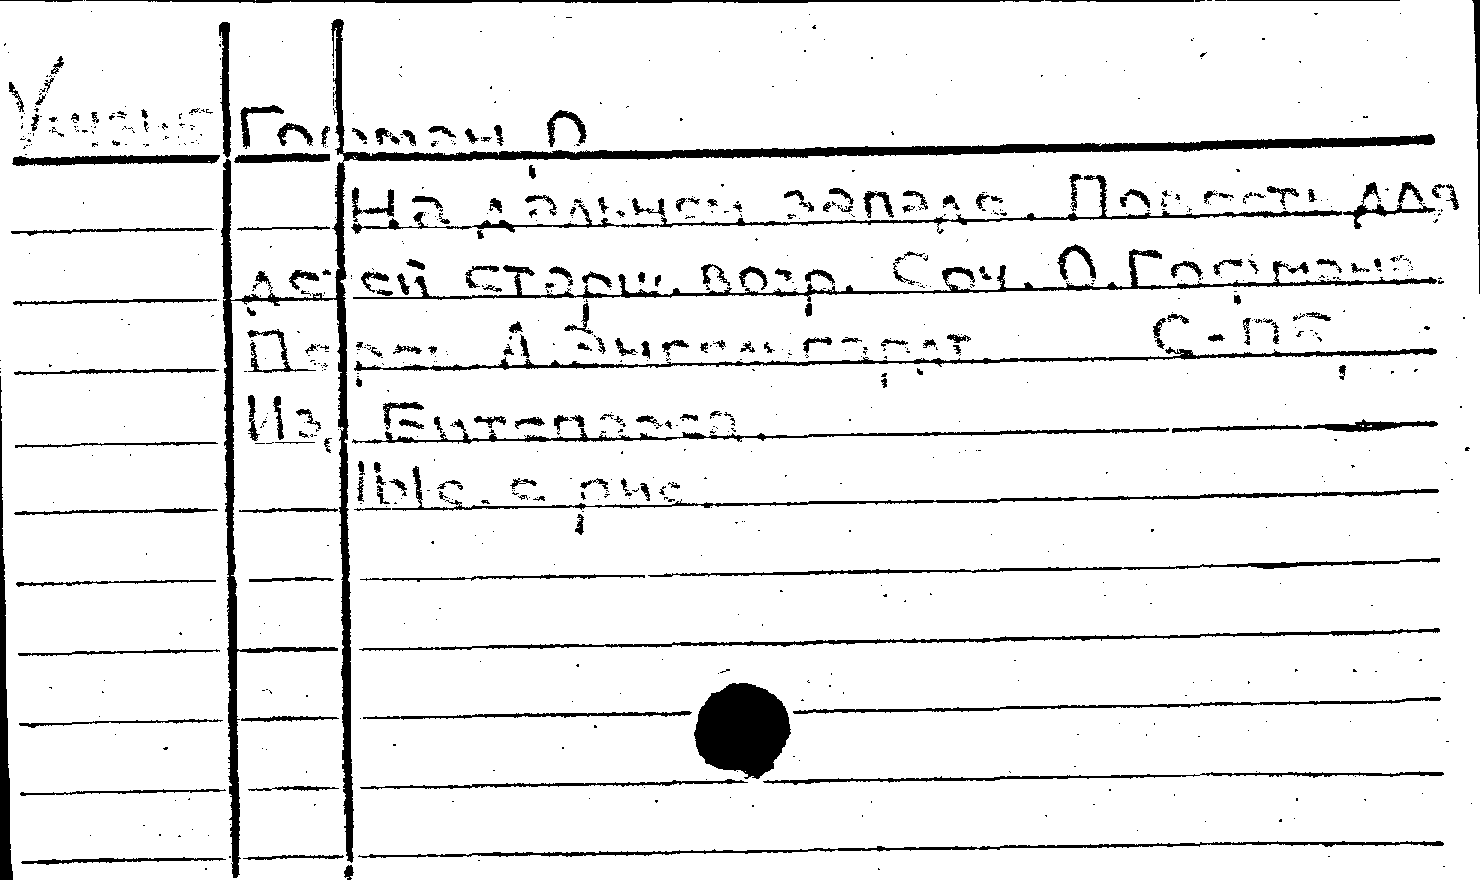 Гофман О
На дальнем западе. Повесть для
детей старш. возр. Соч. О. Гофмана.
Перев. А. Энгельгардт С-ПБ,
Из, Битепажа.
с рис